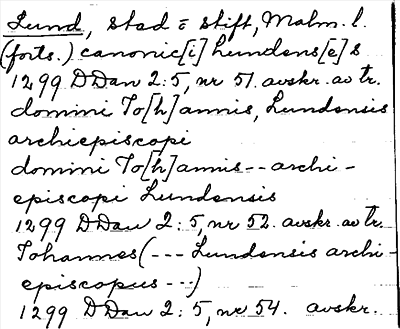 Lund, stad o stift, Malm. l.
(forts.) canonic[i] lundens[e]s
1299 DDan 2:5, nr 51. avskr. av tr.
domini Io[h]annis, Lundensis
archiepiscopi
domini Io[h]annis -- archi-
episcopi Lundensis
1299 DDan 2:5, nr 52. avskr. av tr.
Iohannes (--- Lundensis archi-
episcopus ---)
1299 DDan 2:5, nr 54. avskr.